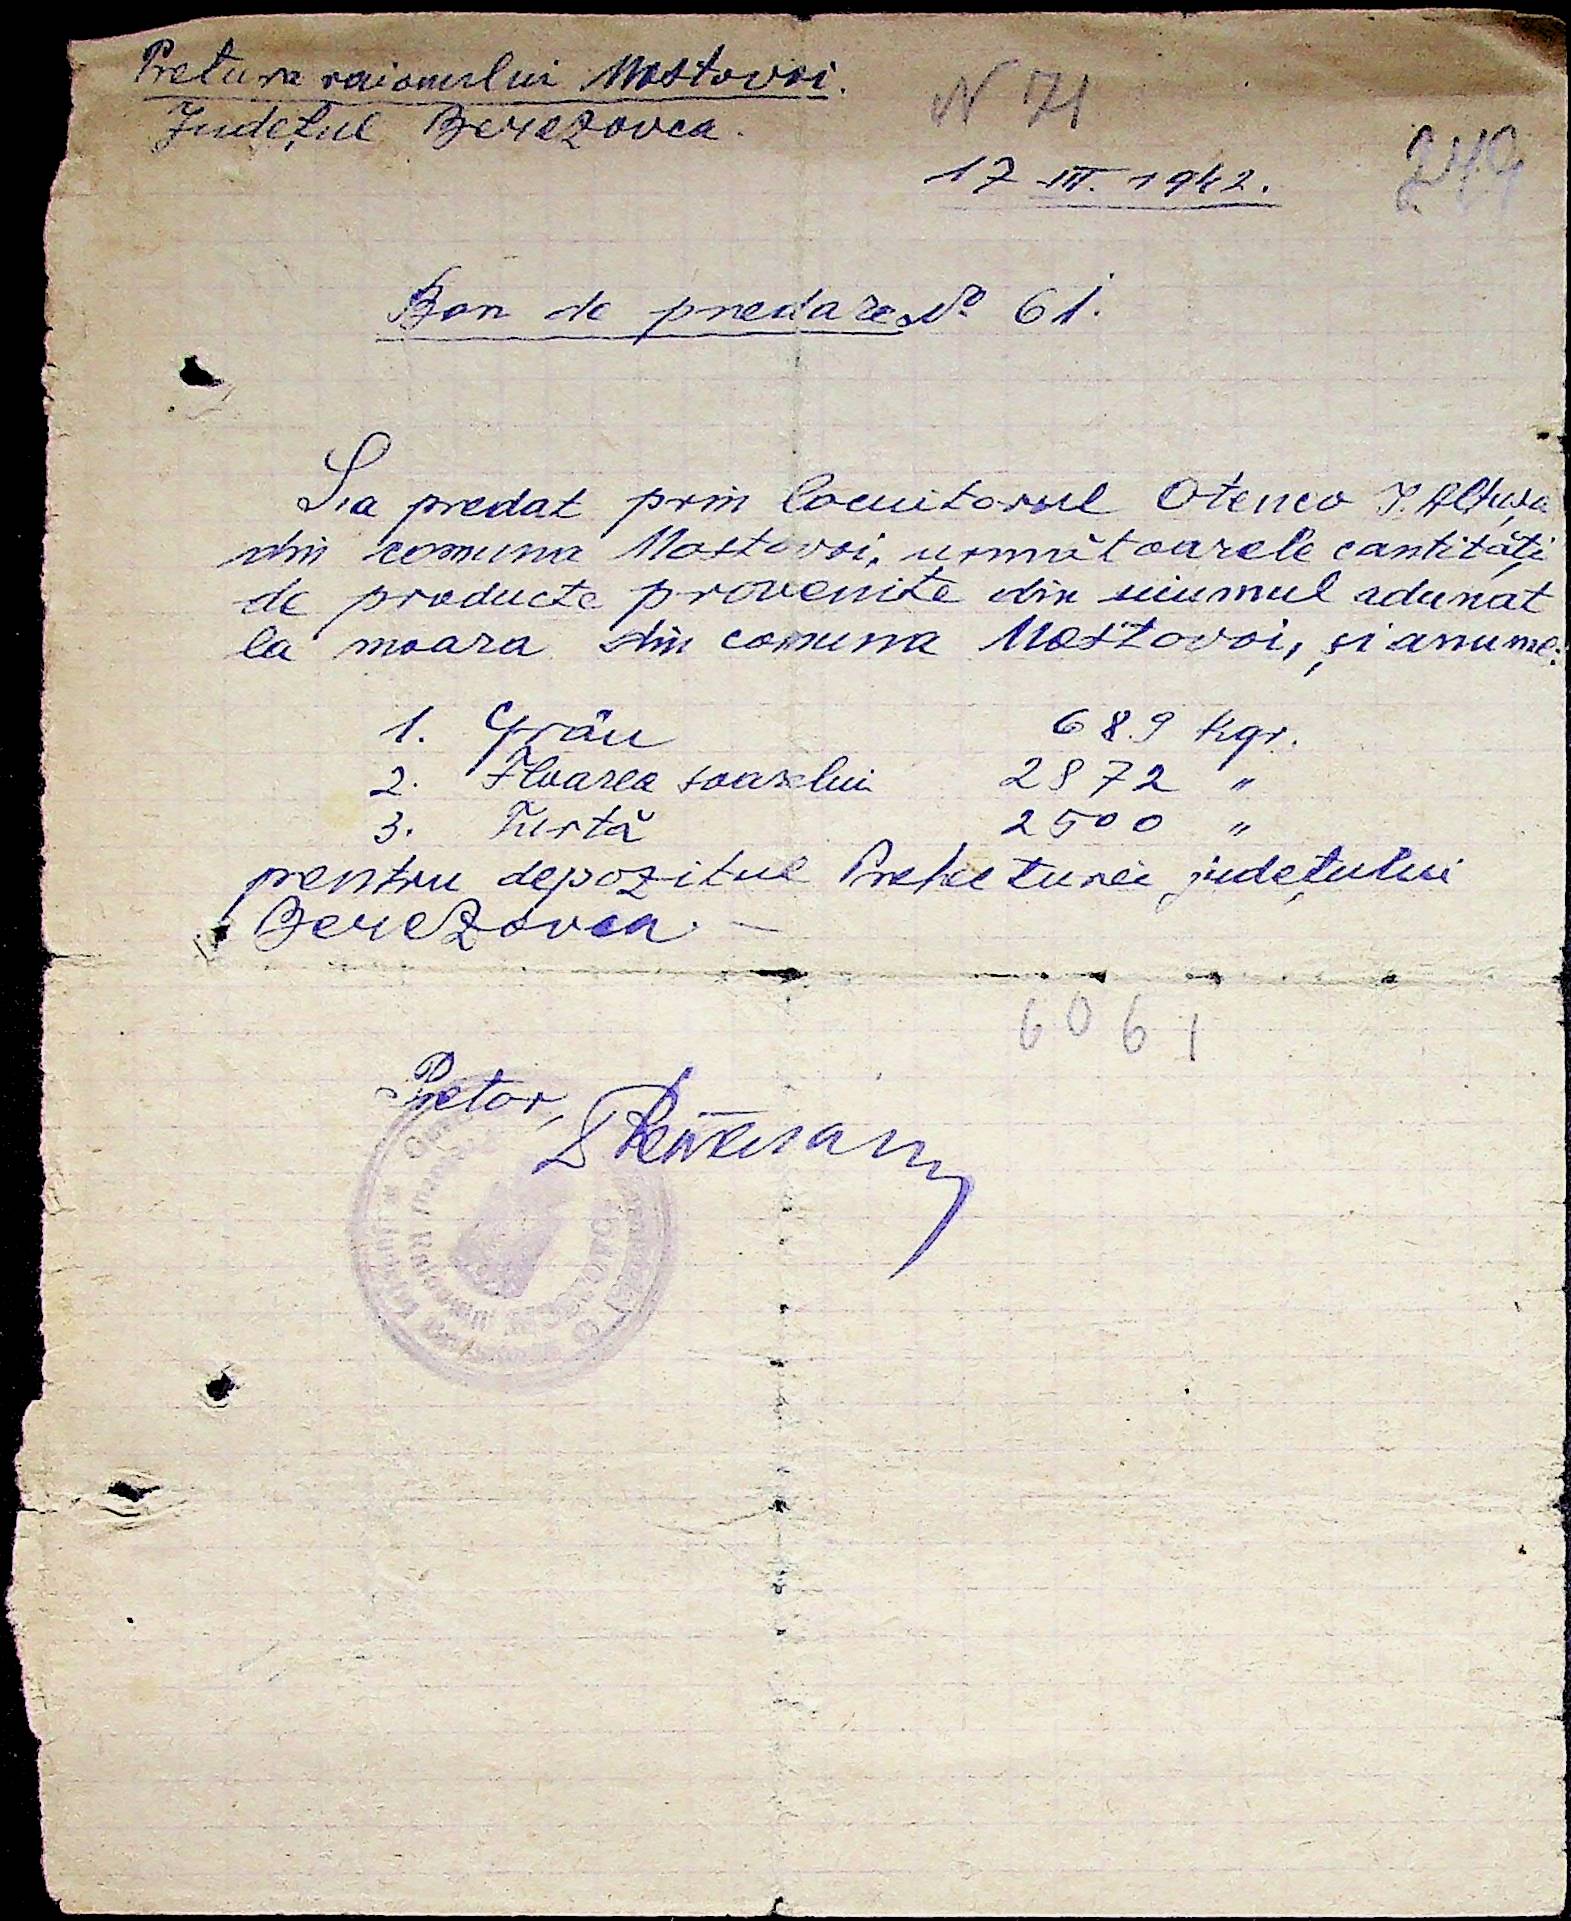 Pretura raionului Mostovoi.
Județul Berezovca.
N 71
17 III. 1942.
249
Bon de predare No 61.
S.a predat prin locuitorul Otenco
din comuna Mostovoi, următoarele cantități
de producte provenite din uiumul adunat
la moara din comuna Mostovoi, și anume:
1. Grâu 689 kgr.
2. Floarea soarelui 2872 "
3. Turtă 2500 "
pentru depozitul Prefecturei județului
Berezovca. —
6061
Pretor,